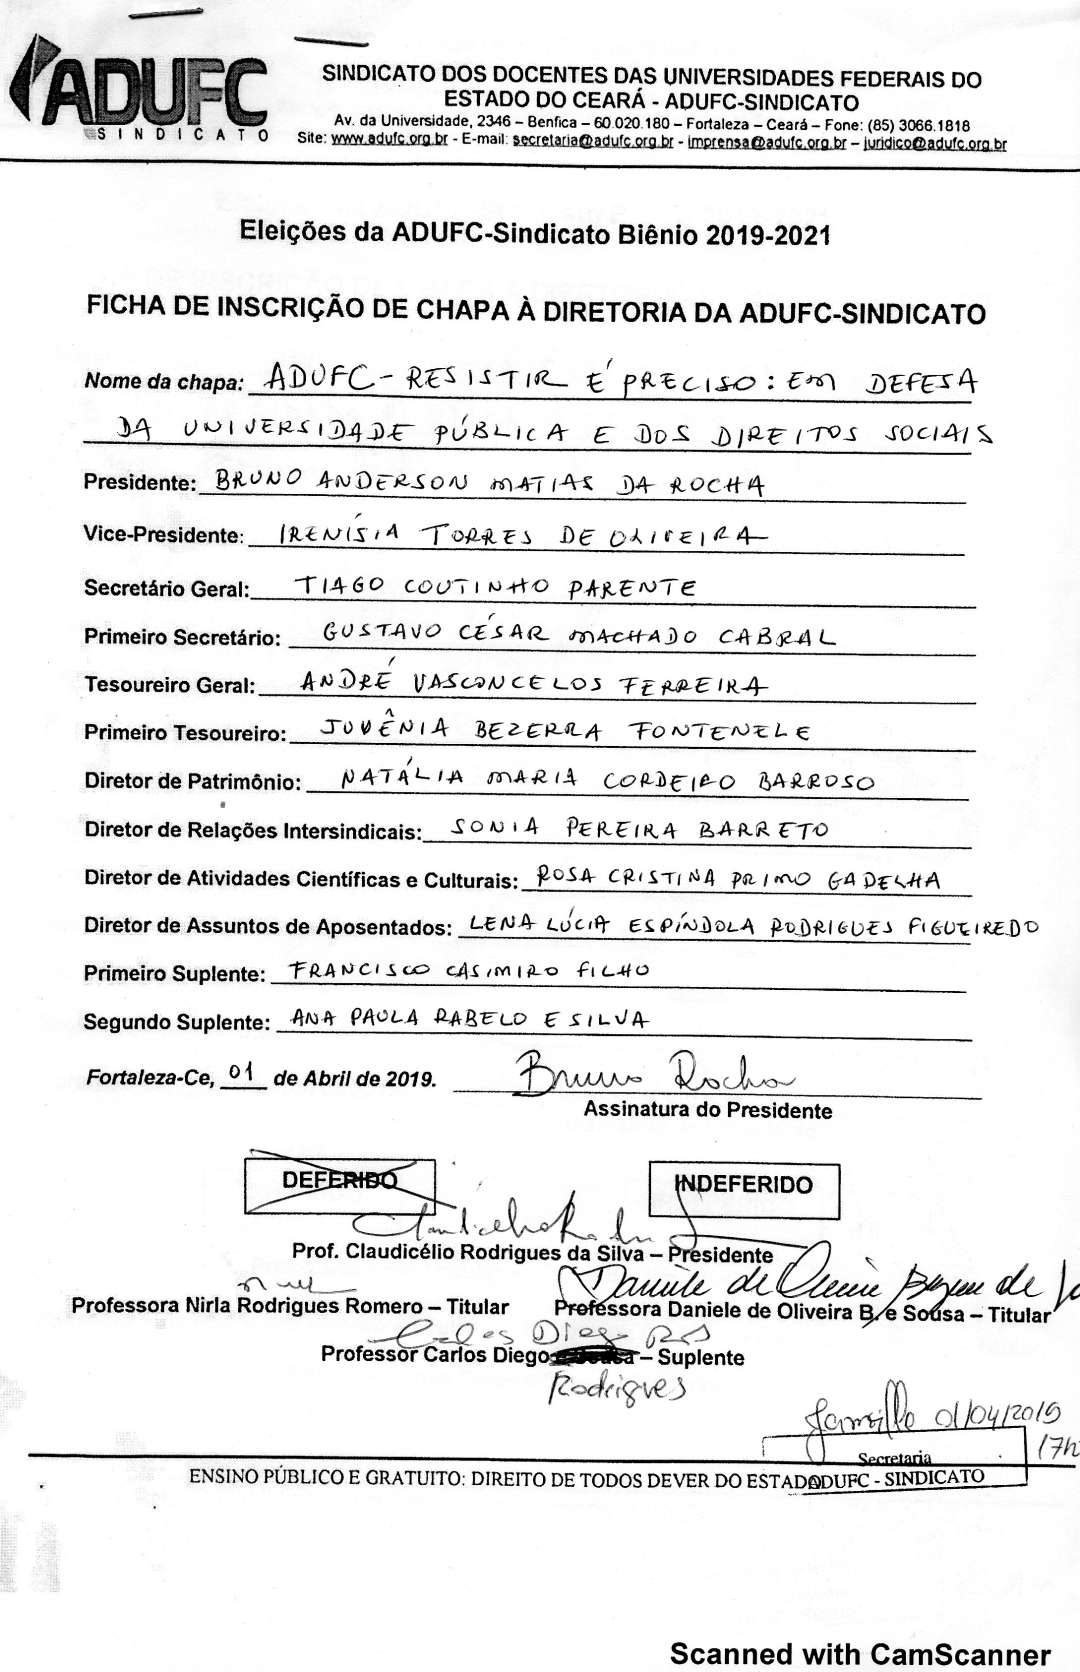 ADUFC
SINDICATO
SINDICATO DOS DOCENTES DAS UNIVERSIDADES FEDERAIS DO
ESTADO DO CEARÁ - ADUFC-SINDICATO
Av. da Universidade, 2346 – Benfica – 60.020.180 – Fortaleza – Ceará – Fone: (85) 3066.1818
Site: www.adufc.org.br - E-mail: secretaria@adufc.org.br - imprensa@adufc.org.br – juridico@adufc.org.br
Eleições da ADUFC-Sindicato Biênio 2019-2021
FICHA DE INSCRIÇÃO DE CHAPA À DIRETORIA DA ADUFC-SINDICATO
Nome da chapa: ADUFC - RESISTIR É PRECISO: EM DEFESA
DA UNIVERSIDADE PÚBLICA E DOS DIREITOS SOCIAIS
Presidente: BRUNO ANDERSON MATIAS DA ROCHA
Vice-Presidente: IRENÍSIA TORRES DE OLIVEIRA
Secretário Geral: TIAGO COUTINHO PARENTE
Primeiro Secretário: GUSTAVO CÉSAR MACHADO CABRAL
Tesoureiro Geral: ANDRÉ VASCONCELOS FERREIRA
Primeiro Tesoureiro: JUVÊNIA BEZERRA FONTENELE
Diretor de Patrimônio: NATÁLIA MARIA CORDEIRO BARROSO
Diretor de Relações Intersindicais: SONIA PEREIRA BARRETO
Diretor de Atividades Científicas e Culturais: ROSA CRISTINA PRIMO GADELHA
Diretor de Assuntos de Aposentados: LENA LÚCIA ESPÍNDOLA RODRIGUES FIGUEIREDO
Primeiro Suplente: FRANCISCO CASIMIRO FILHO
Segundo Suplente: ANA PAULA RABELO E SILVA
Fortaleza-Ce, 01 de Abril de 2019. Bruno Rocha
Assinatura do Presidente
DEFERIDO INDEFERIDO
Prof. Claudicélio Rodrigues da Silva – Presidente
Daniele de Oliveira Bezerra de
Professora Nirla Rodrigues Romero – Titular Professora Daniele de Oliveira B. e Sousa – Titular
Carlos Diego
Professor Carlos Diego – Suplente
Rodrigues
01/04/2019
17h
Secretaria
ADUFC - SINDICATO
ENSINO PÚBLICO E GRATUITO: DIREITO DE TODOS DEVER DO ESTADO
Scanned with CamScanner